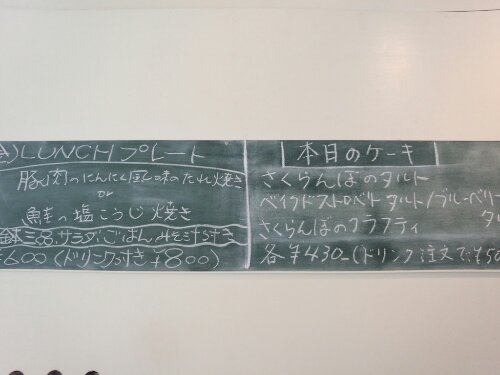 LUNCHプレート
豚肉のにんにく風味のたれ焼き
or
鮭の塩こうじ焼き
サラダ、ごはん、みそ汁付き
¥600 (ドリンク付き ¥800)
本日のケーキ
さくらんぼのタルト
ベイクドストロベリータルト/ブルーベリー
さくらんぼのクラフティ
各¥430-(ドリンク注文で¥50